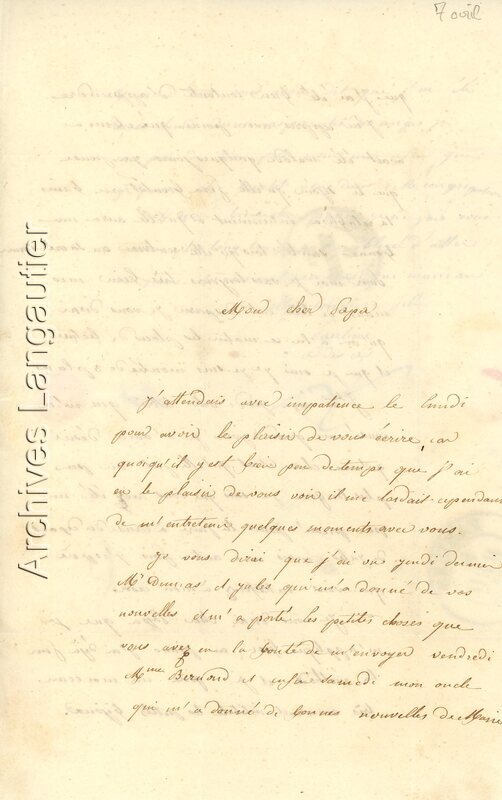 7 avril
Mon cher Papa
J'attendais avec impatience le lundi
pour avoir le plaisir de vous écrire, car
quoiqu'il y est bien peu de temps que j'ai
eu le plaisir de vous voir il me tardait cependant
de m'entretenir quelques moments avec vous.
Je vous dirai que j'ai vu jeudi dernier
Mr Dumas et jules qui m'a donné de vos
nouvelles et m'a porté les petites choses que
vous avez eu la bonté de m'envoyer vendredi
Mme Bernard et enfin samedi mon oncle
qui m'a donné de bonnes nouvelles de Marie
Archives Langautier